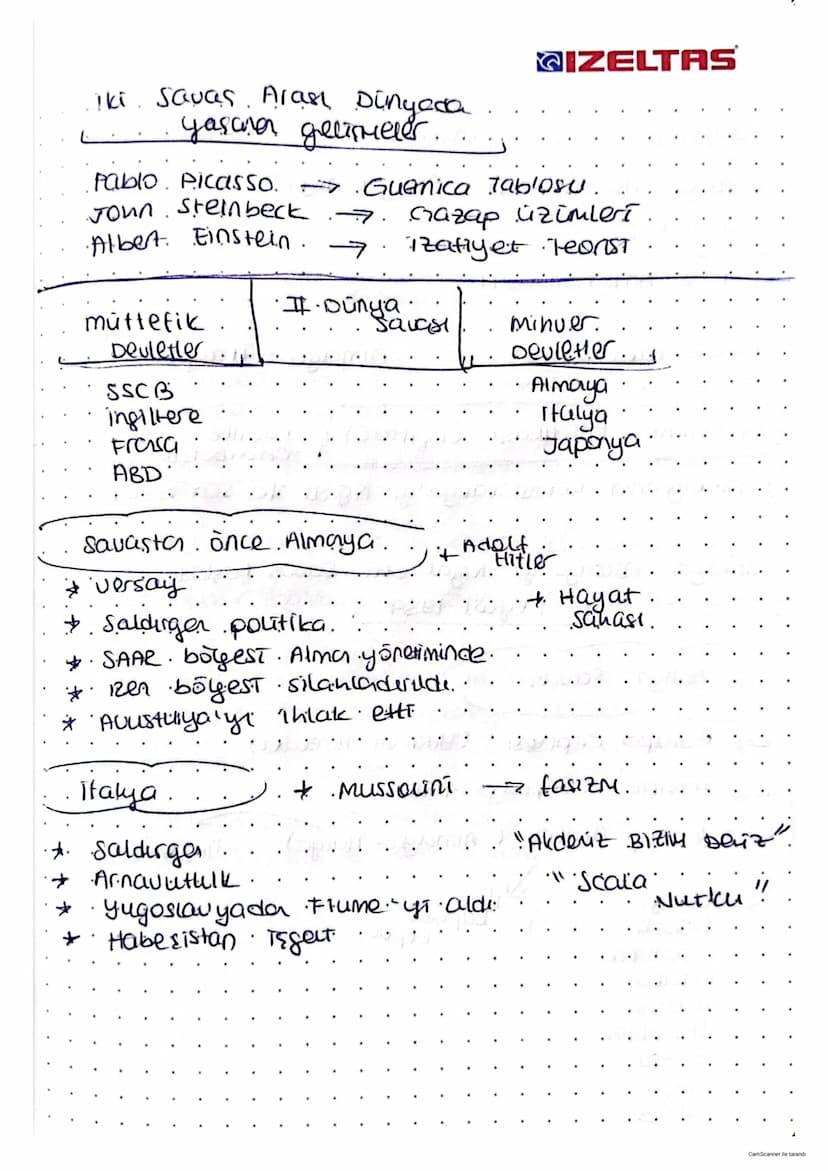 IZELTAS
iki Savaş Arası Dünyada
yaşanan gelişmeler
Pablo Picasso → Guernica Tablosu
John Steinbeck → Gazap üzümleri
Albert Einstein → izafiyet teorisi
müttefik Devletler
II. Dünya Savaşı
Mihver Devletler
SSCB
ingiltere
Fransa
ABD
Almaya
Italya
Japonya
Savaştan önce Almaya
+ Adolf Hitler
* Versay
+ Hayat Sahası
* Saldırgan politika
* SAAR bölgesi Alman yönetiminde
* ren bölgesi silahlandırıldı
* Avusturya'yı ilhak etti
italya
* Mussolini → faşizm
* Saldırgan
"Akdeniz Bizim Deniz"
* Arnavutluk
"Scala Nutku"
* Yugoslavyadan Fiume-yi aldı
* Habeşistan işgali
CamScanner ile tarandı